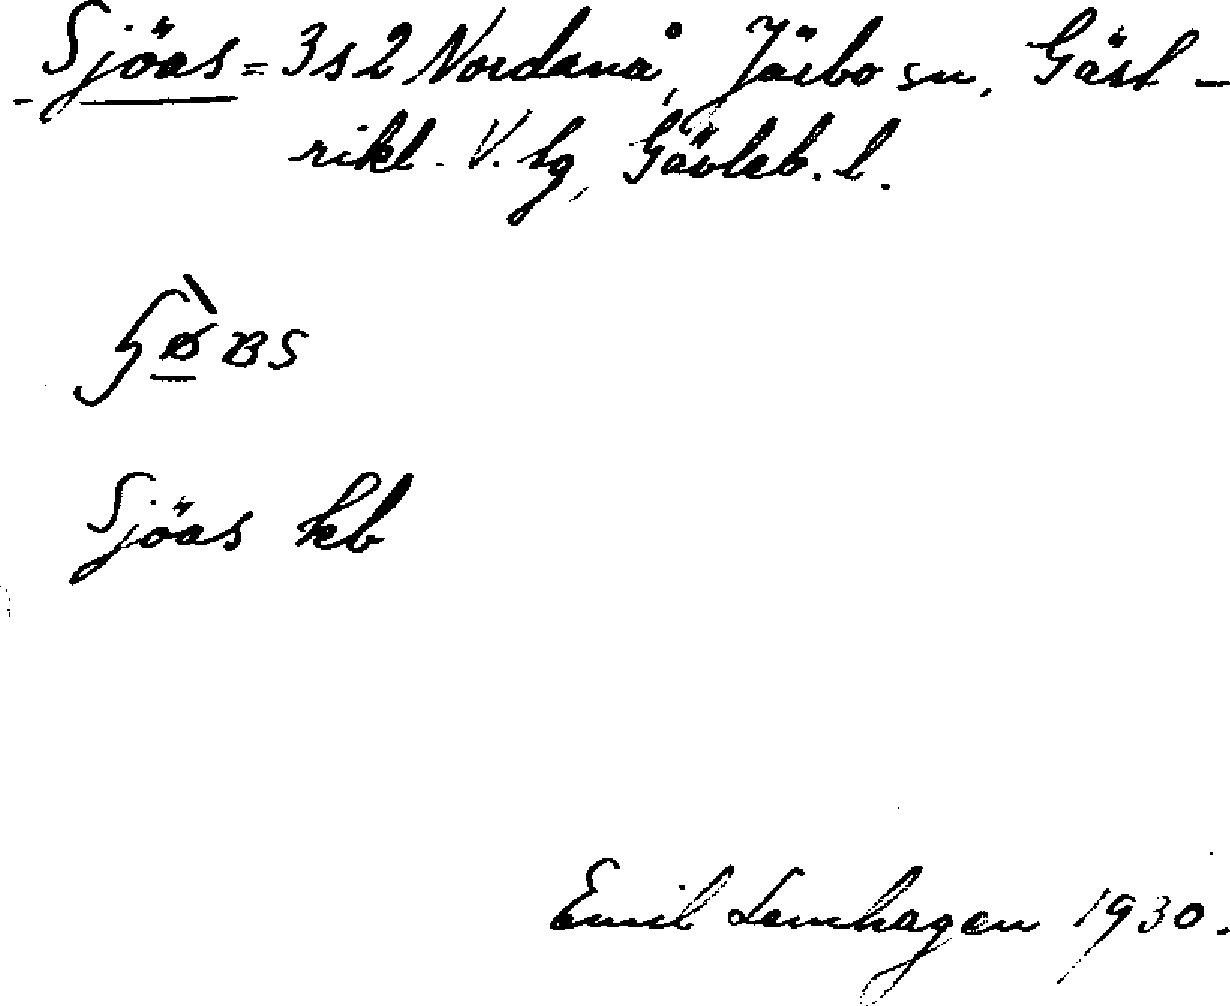 Sjöas = 3s2 Nordanå, Järbo sn, Gäst-
rikl. V. tg, Gävleb. l.
Sjöas kb
Emil Lemhagen 1930.